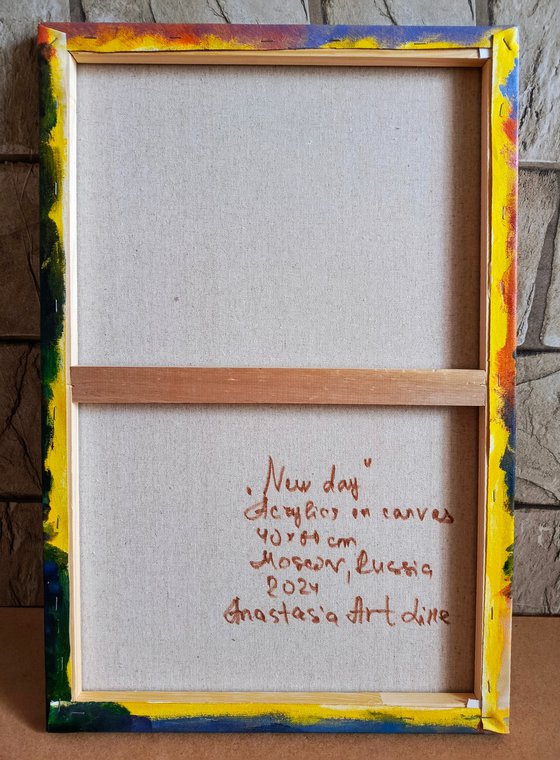 „New day"
Acrylics on canvas
40×60 cm
Moscow, Russia
2024
Anastasia Art Line